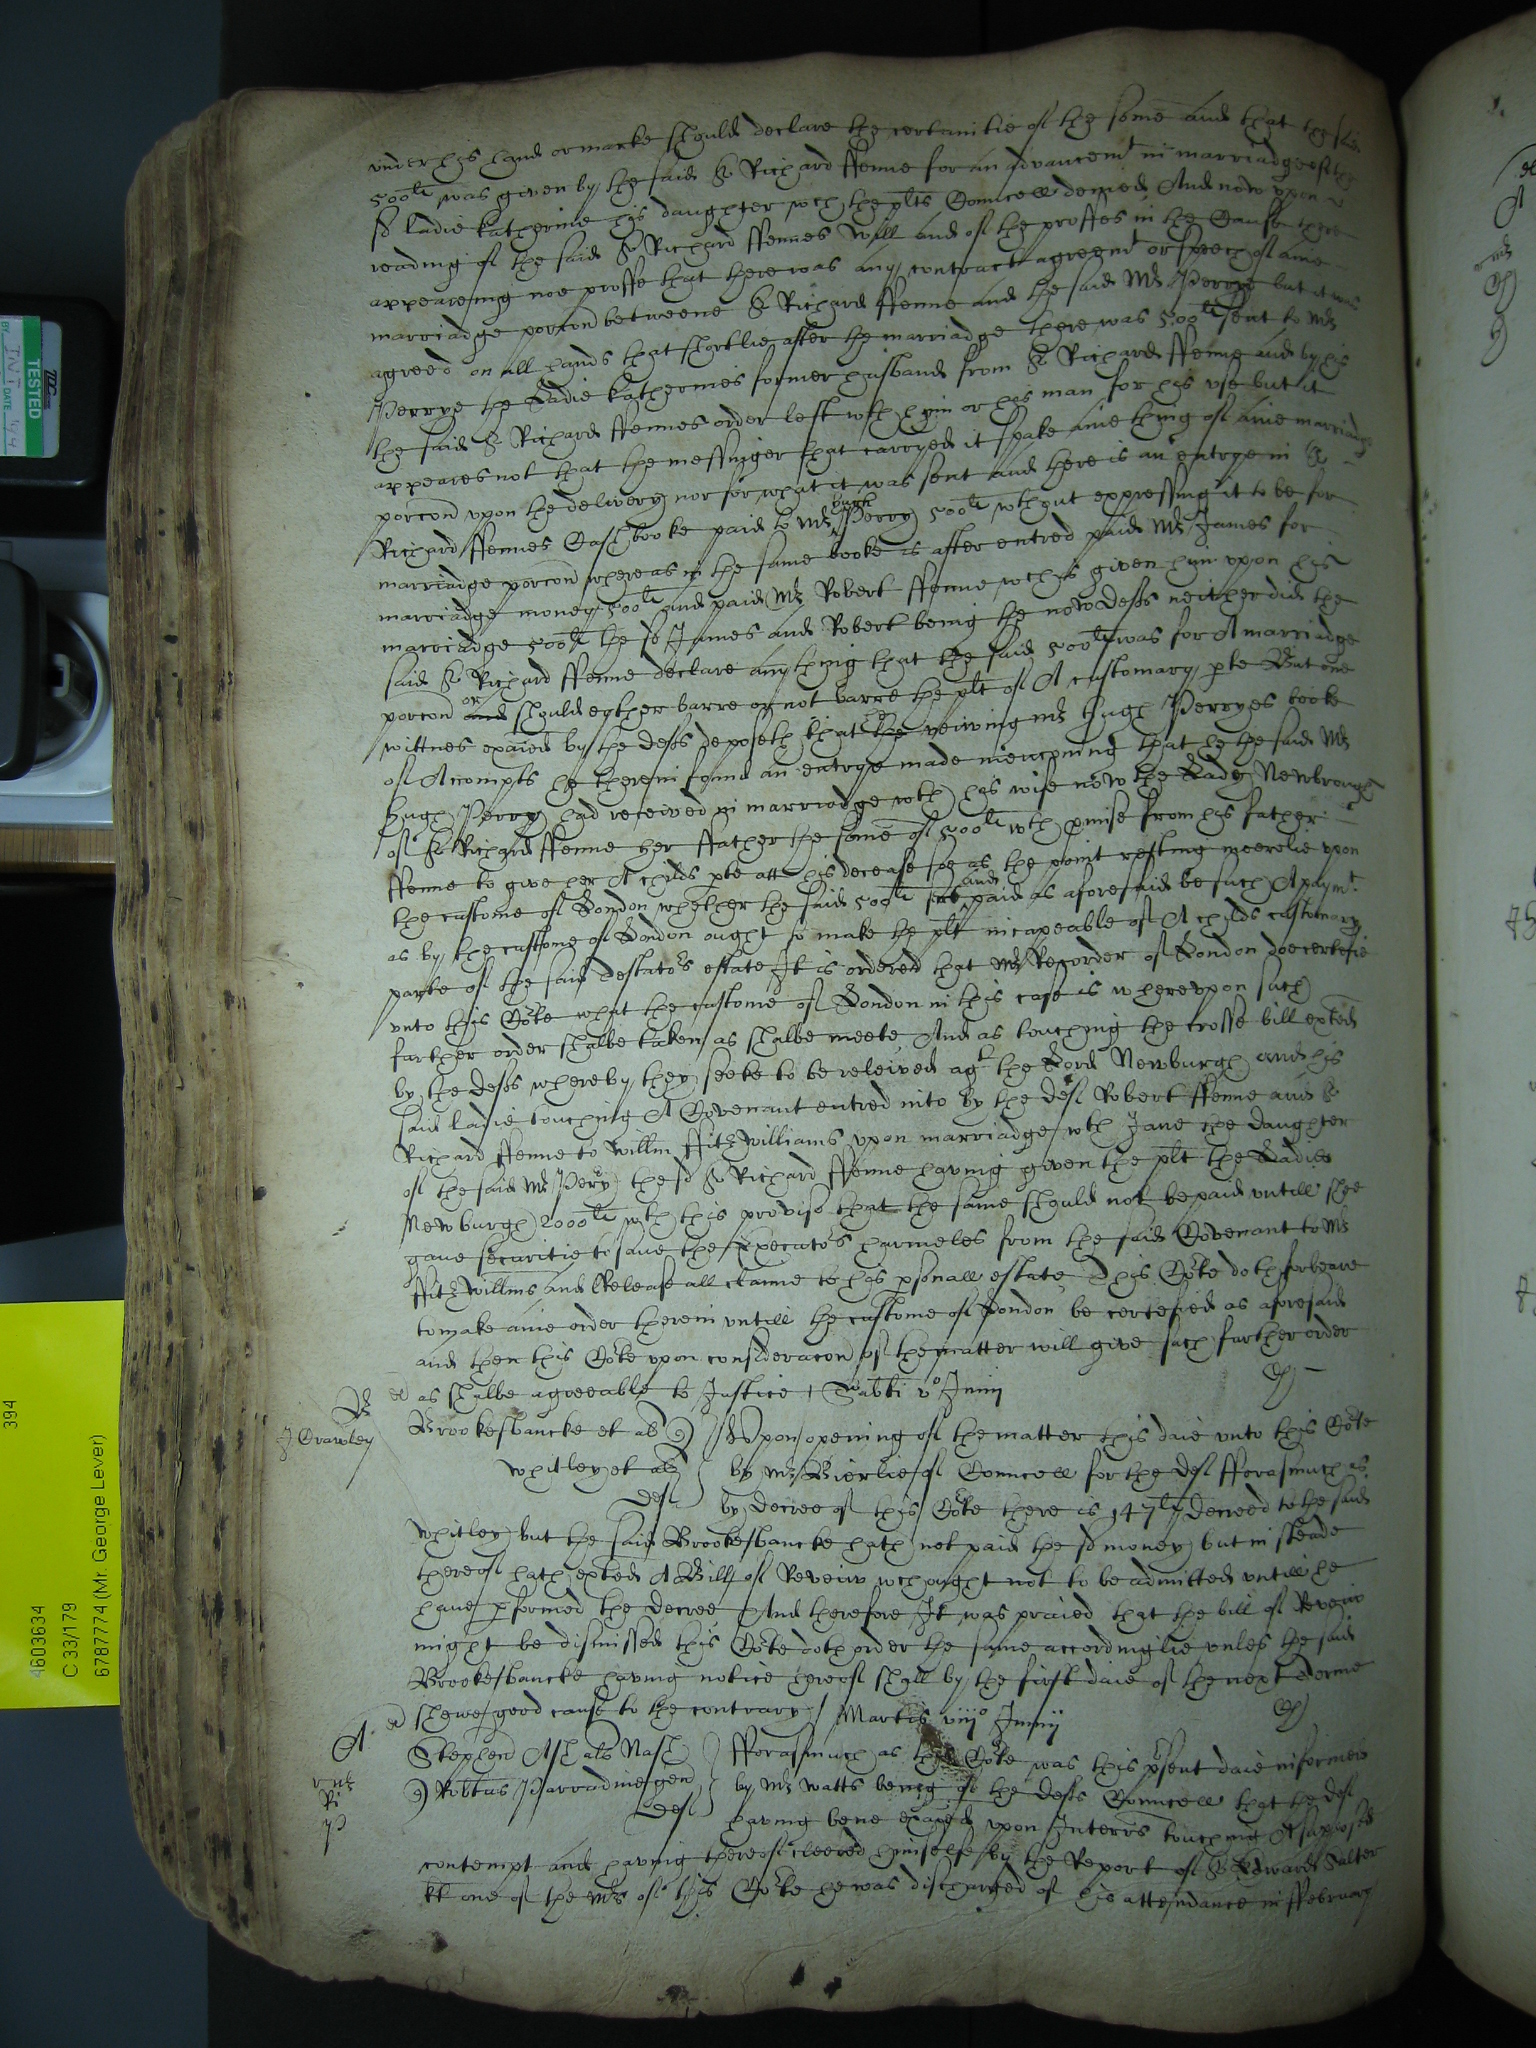 vnder his hand or marke should declare the certaintie of the some and that the said
500li was given by the said Sr Richard Fenne for an advancemt in marriadge of the
sd Ladie Katherine his daughter wch the plts Councell denied And now vpon
reading of the said Sr Richard ffennes Will and of the proffes in the Cause there
appeareing noe proffe that there was any contract agreemt or speech of anie
marriadge porcon betweene Sr Richard ffenne and the said Mr Perrye but it was
agreed on all hands that shortlie after the marriadge there was 500li sent to Mr
Perrye the Ladie Katherines former husband from Sr Richard ffenne and by his
the said Sr Richard ffennes order left wth him or his man for his vse but it
appeares not that the messinger that carryed it spake anie thing of anie marriadge
porcon vpon the delivery nor for what it was sent and there is an entrye in Sr
Richard ffennes Cash booke paid to Mr Hugh Perry 500li wthout expressing it to be for
marriadge porcon whereas in the same booke is after entred paid Mr James for
marriadge money 500li and paid Mr Robert ffenne wch is given him vpon his
marriadge 500li the sd James and Robert being the now defts neither did the
said Sr Richard ffenne declare any thing that the said 500li was for A marriadge
porcon or and should eyther barre or not barre the plt of A customary pte But one
wittnes exaied by the defts deposeth that the he veiwing Mr Hugh Perryes booke
of Acompts he therein found an entrye made mencioning that he the said Mr
Hugh Perry had received in marriadge wth his wife now the Lady Newbrough
of Sr Richard ffenne her ffather the some of 500li wth pmise from his father
ffenne to give her A childs pte att his decease soe as the point resting meerelie vpon
the custome of London whether the said 500li sent and paid as aforesaid be such A paymt
as by the custome of London ought to make the plt incapeable of A childs customary
parte of the said testators estate It is ordered that Mr Recorder of London doe certefie
vnto this Cote what the custome of London in this case is wherevpon such
further order shalbe taken as shalbe meete And as touching the crosse bill exted
by the defts whereby they seeke to be releived agt the Lord Newburgh and his
said ladie touching A Covenant entred into by the deft Robert ffenne and Sr
Richard ffenne to Willm ffitzwilliams vpon marriadge wth Jane the daughter
of the said Mr Perry the sd Sr Richard ffenne having given the plt the Ladie
Newburgh 2000li wth this proviso that the same should not be paid vntill shee
gaue securitie to saue the executors harmeles from the said Covenant to Mr
ffitzwillms and Release all claime to his psonall estate This Cote doth forbeare
to make anie order therein vntill the custome of London be certefied as aforesaid
and then this Cote vpon consideracon of the matter will give such further order
as shalbe agreeable to Justice / Sabti vo Junij
B
J Crawley
Brookesbancke et al
Whitley et al
deft
Vpon opening of the matter this daie vnto this Cote
by Mr Bierlie of Councell for the deft fforasmuch as
by decree of this Cote there is 147li decreed to the said
Whitley but the said Brookesbancke hath not paid the sd money but in steade
thereof hath exted A Bill of Reveiw wch ought not to be admitted vntill he
haue pformed the decree And therefore It was praied that the bill of Reveiw
might be dismissed this Cote doth order the same accordinglie vnles the said
Brookesbancke having notice hereof shall by the first daie of the next Terme
shewe good cause to the contrary / Martis viijo Junij
A
Stephen Ash als Nash
Robtus Parradine gen
deft
fforasmuch as this Cote was this psent daie informed
by Mr Watts being of the defts Councell that the deft
having bene exaied vpon Interrs touching A supposed
contempt and having thereof cleered himselfe by the Report of Sr Edward Salter
kt one of the Mrs of this Cote he was discharged of his attendance in ffebruary
TESTED
DATE
394
4603634
C 33/179
6787774 (Mr. George Lever)